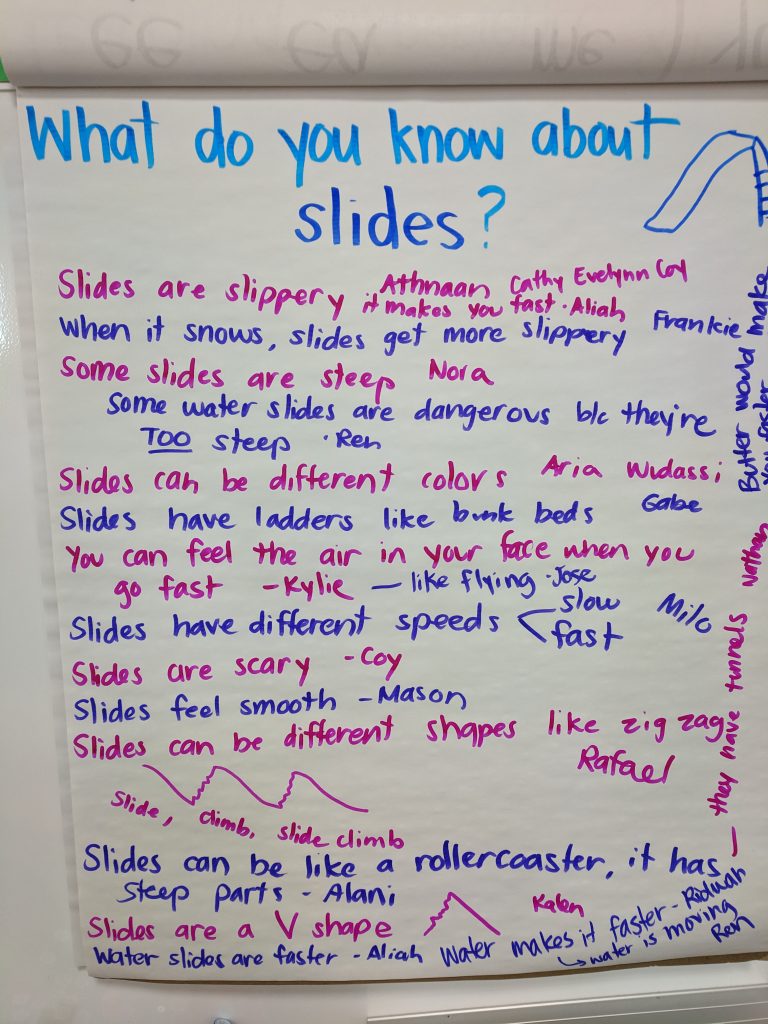 What do you know about
slides?
Slides are slippery Athnaan Cathy Evelynn Coy
it makes you fast · Aliah
When it snows, slides get more slippery Frankie
Some slides are steep Nora
Some water slides are dangerous b/c they're
TOO steep · Ren
Slides can be different colors Aria Widassi
Slides have ladders like bunk beds Gabe
You can feel the air in your face when you
go fast - Kylie — like flying · Jose
Slides have different speeds slow
fast
Milo
Slides are scary - Coy
Slides feel smooth - Mason
Slides can be different shapes like zig zag
Rafael
Slide, climb, slide climb
Slides can be like a rollercoaster, it has
steep parts - Alani
— they have tunnels Nathan
Butter would make
you faster
Slides are a V shape Kalen
Water slides are faster - Aliah
Water makes it faster - Ridwah
water is moving
Ren